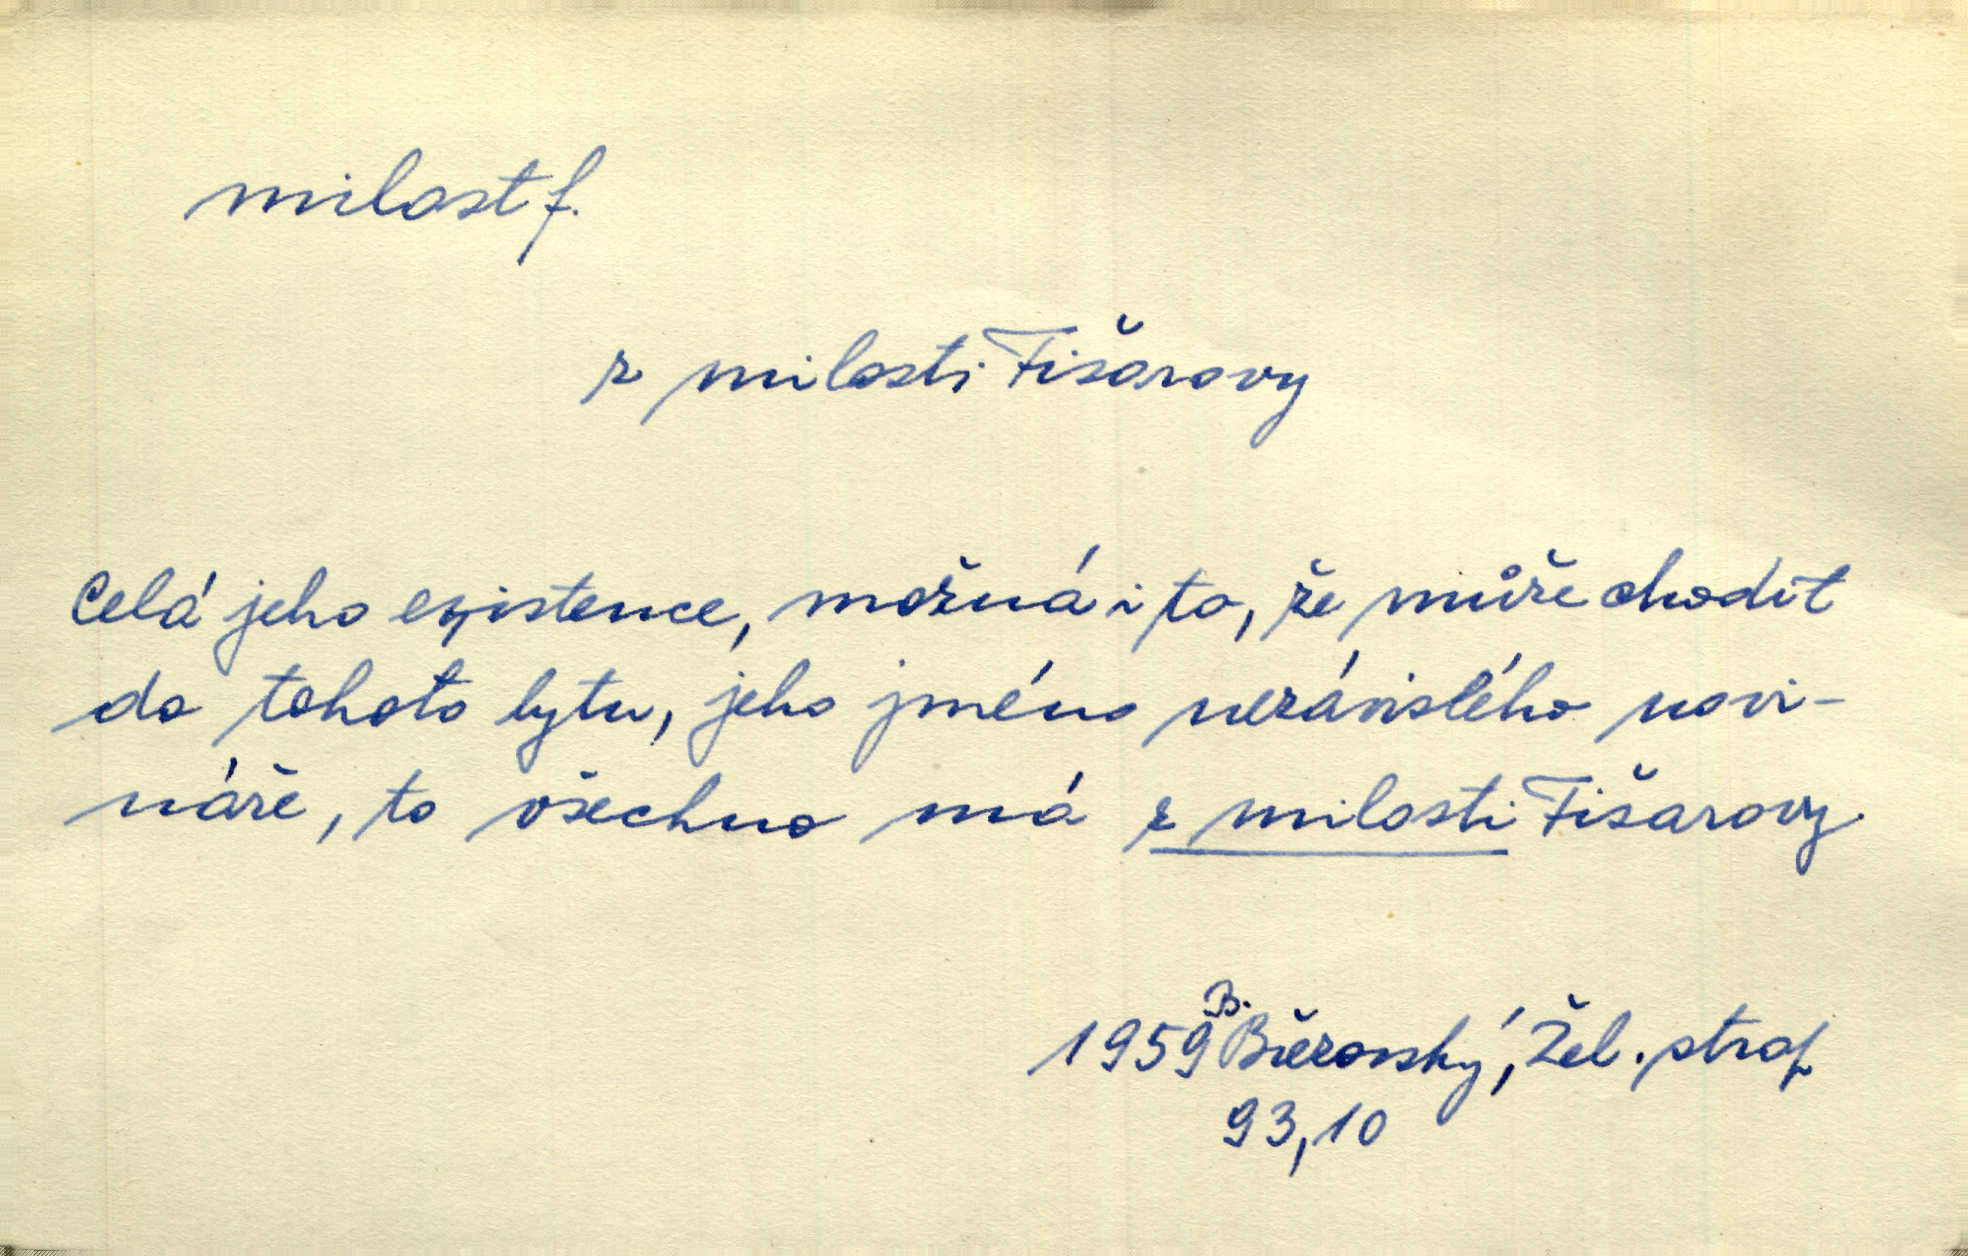 milost f.
z milosti Fišarovy
Celá jeho existence, možná i to, že může chodit
do tohoto bytu, jeho jméno nezávislého novi-
náře, to všechno má z milosti Fišarovy.
B.
1959 Březovský, Žel. strop
93,10